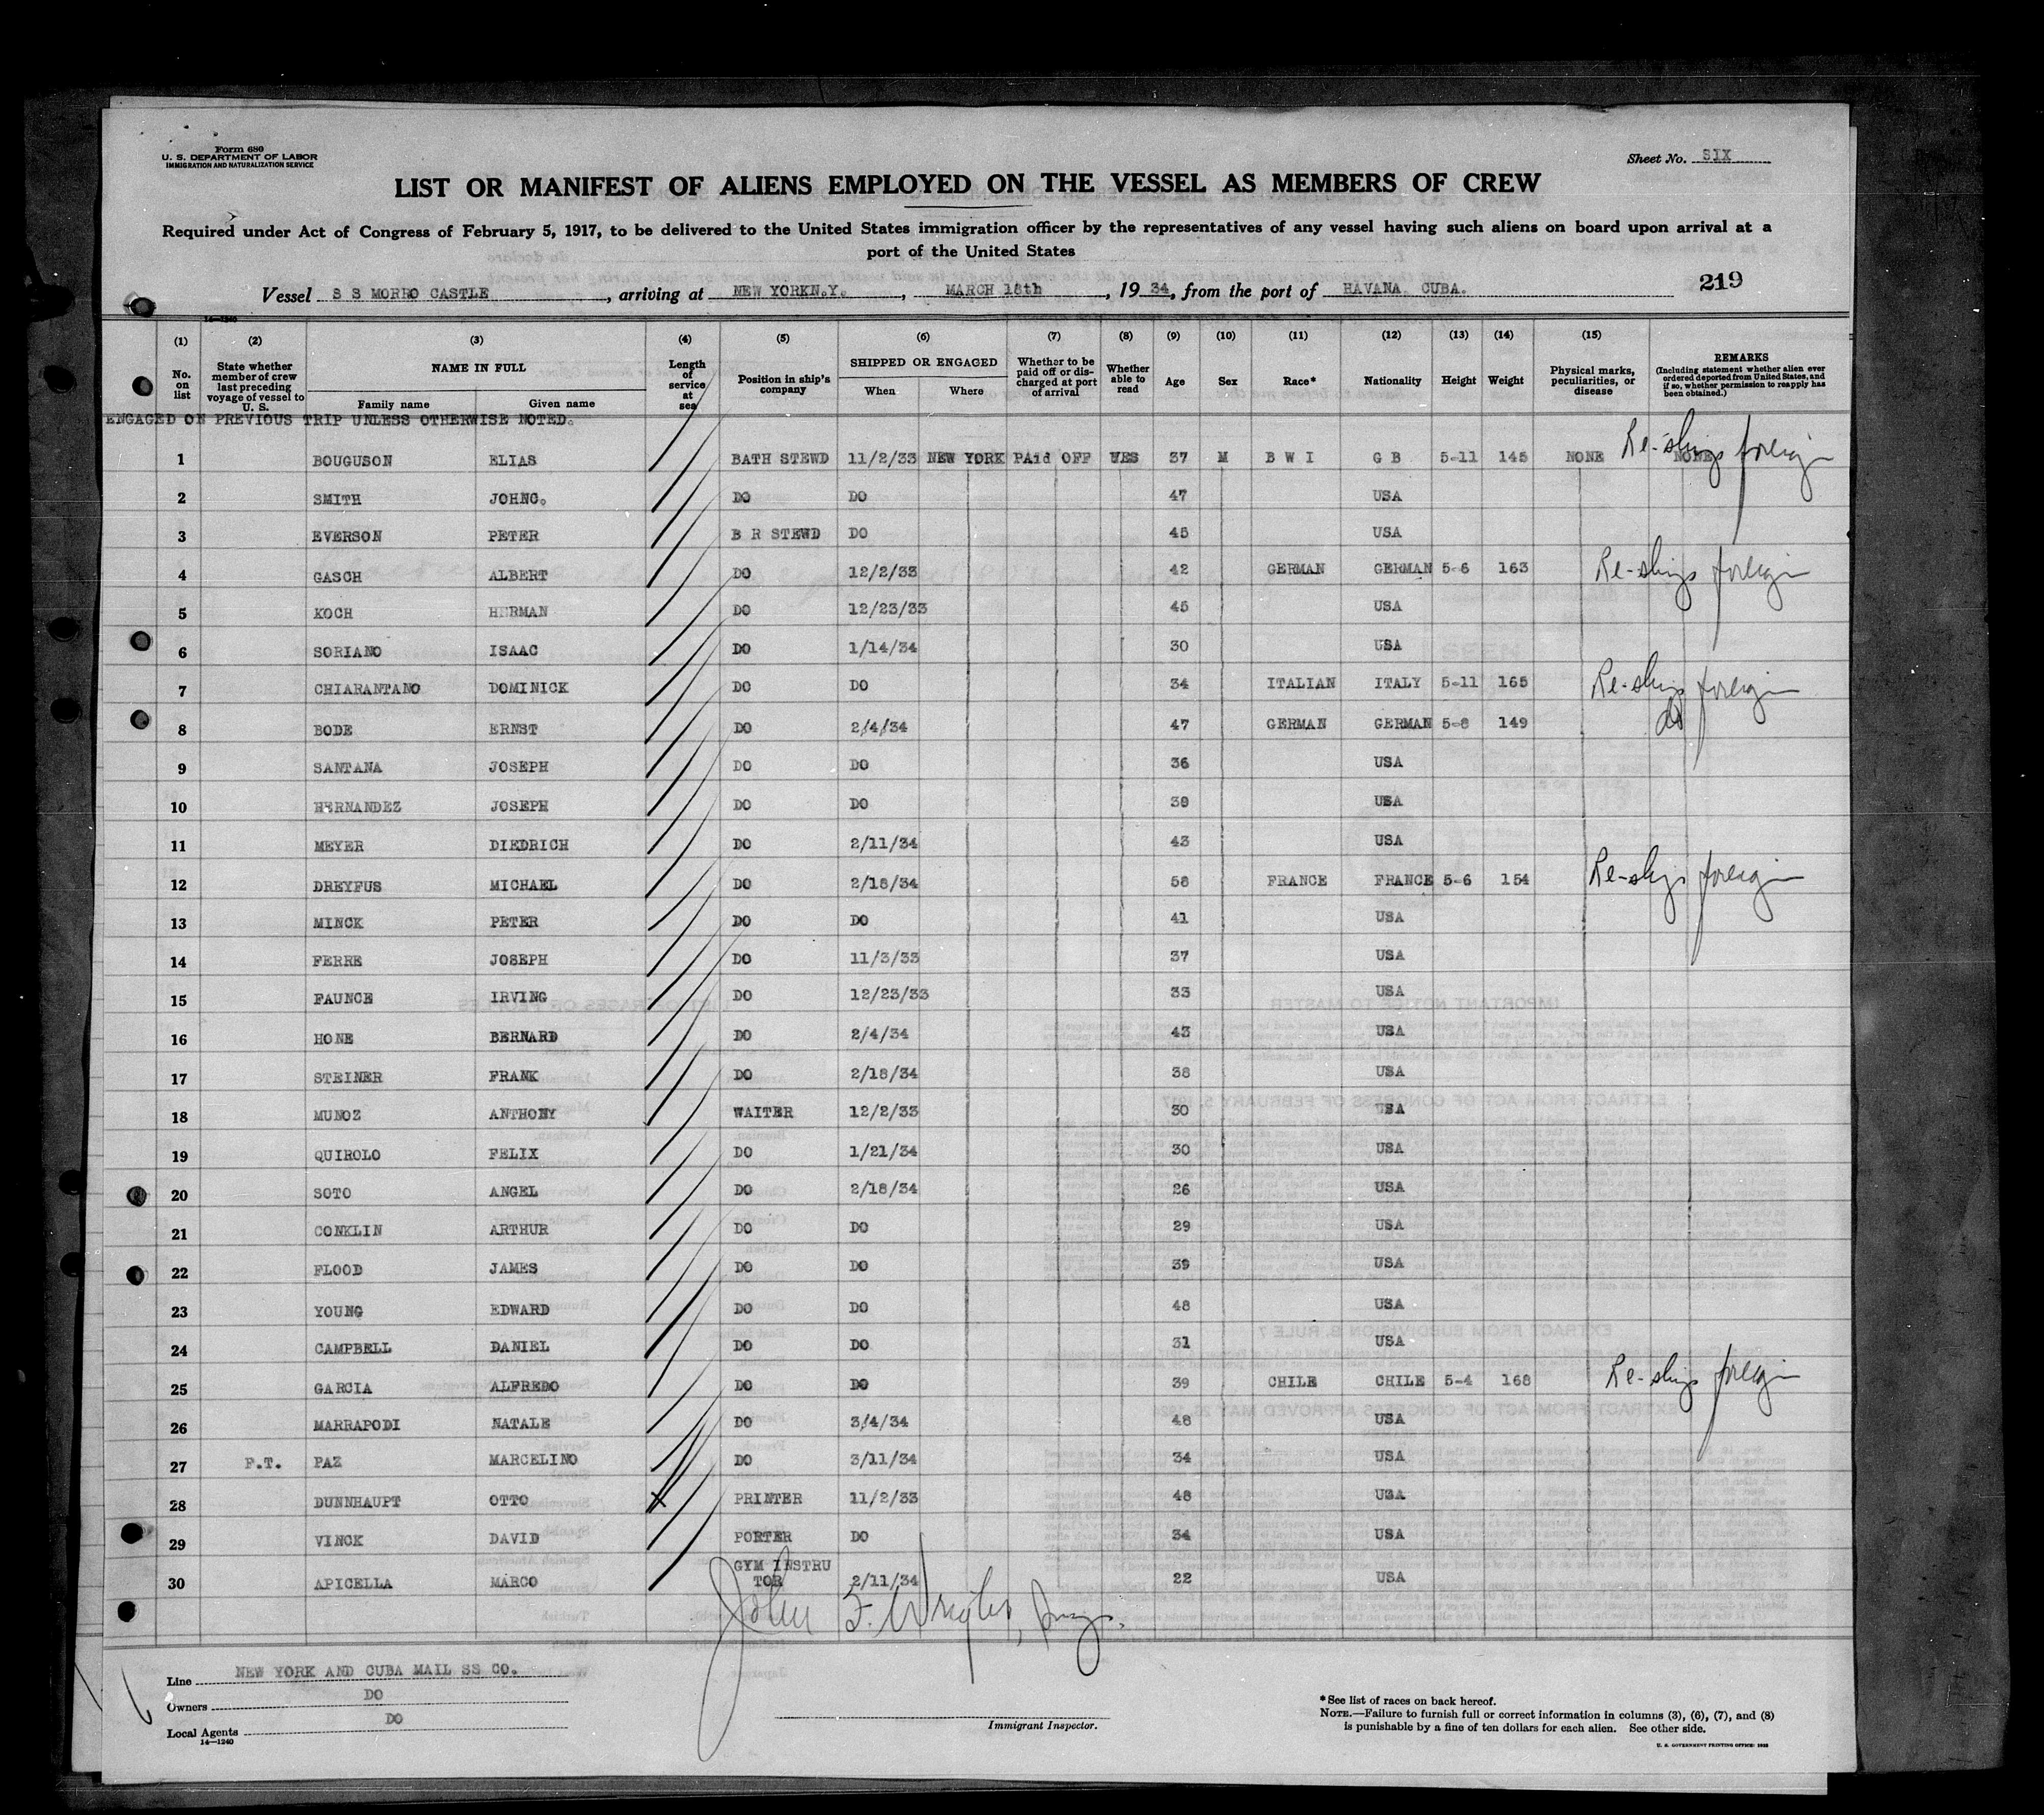 Form 680
U. S. DEPARTMENT OF LABOR
IMMIGRATION AND NATURALIZATION SERVICE
Sheet No. SIX
LIST OR MANIFEST OF ALIENS EMPLOYED ON THE VESSEL AS MEMBERS OF CREW
Required under Act of Congress of February 5, 1917, to be delivered to the United States immigration officer by the representatives of any vessel having such aliens on board upon arrival at a
port of the United States
219
Vessel S S MORRO CASTLE, arriving at NEW YORKN.Y., MARCH 18th, 1934, from the port of HAVANA. CUBA.
14—1240
(1) No. on list
(2) State whether member of crew last preceding voyage of vessel to U. S.
(3) NAME IN FULL Family name Given name
(4) Length of service at sea
(5) Position in ship's company
(6) SHIPPED OR ENGAGED When Where
(7) Whether to be paid off or discharged at port of arrival
(8) Whether able to read
(9) Age
(10) Sex
(11) Race*
(12) Nationality
(13) Height
(14) Weight
(15) Physical marks, peculiarities, or disease
REMARKS (Including statement whether alien ever ordered deported from United States, and if so, whether permission to reapply has been obtained.)
ENGAGED ON PREVIOUS TRIP UNLESS OTHERWISE NOTED.
1 BOUGUSON ELIAS BATH STEWD 11/2/33 NEW YORK PAid OFF YES 37 M B W I G B 5-11 145 NONE NONE Re-ships foreign
2 SMITH JOHNC. DO DO 47 USA
3 EVERSON PETER B R STEWD DO 45 USA
4 GASCH ALBERT DO 12/2/33 42 GERMAN GERMAN 5-6 163 Re-ships foreign
5 KOCH HERMAN DO 12/23/33 45 USA
6 SORIANO ISAAC DO 1/14/34 30 USA
7 CHIARANTANO DOMINICK DO DO 34 ITALIAN ITALY 5-11 165 Re-ships foreign
8 BODE ERNST DO 2/4/34 47 GERMAN GERMAN 5-8 149 do
9 SANTANA JOSEPH DO DO 36 USA
10 HERNANDEZ JOSEPH DO DO 38 USA
11 MEYER DIEDRICH DO 2/11/34 43 USA
12 DREYFUS MICHAEL DO 2/18/34 58 FRANCE FRANCE 5-6 154 Re-ships foreign
13 MINCK PETER DO DO 41 USA
14 FERRE JOSEPH DO 11/3/33 37 USA
15 FAUNCE IRVING DO 12/23/33 33 USA
16 HONE BERNARD DO 2/4/34 43 USA
17 STEINER FRANK DO 2/18/34 38 USA
18 MUNOZ ANTHONY WAITER 12/2/33 30 USA
19 QUIROLO FELIX DO 1/21/34 30 USA
20 SOTO ANGEL DO 2/18/34 26 USA
21 CONKLIN ARTHUR DO DO 29 USA
22 FLOOD JAMES DO DO 39 USA
23 YOUNG EDWARD DO DO 48 USA
24 CAMPBELL DANIEL DO DO 31 USA
25 GARCIA ALFREDO DO DO 39 CHILE CHILE 5-4 168 Re-ships foreign
26 MARRAPODI NATALE DO 3/4/34 48 USA
27 F.T. PAZ MARCELINO DO 3/11/34 34 USA
28 DUNNHAUPT OTTO X PRINTER 11/2/33 48 USA
29 VINCK DAVID PORTER DO 34 USA
30 APICELLA MARCO GYM INSTRU TOR 2/11/34 22 USA
John F. Wright, Insp.
Line NEW YORK AND CUBA MAIL SS CO.
Owners DO
Local Agents DO
14—1240
Immigrant Inspector.
*See list of races on back hereof.
NOTE.—Failure to furnish full or correct information in columns (3), (6), (7), and (8)
is punishable by a fine of ten dollars for each alien. See other side.